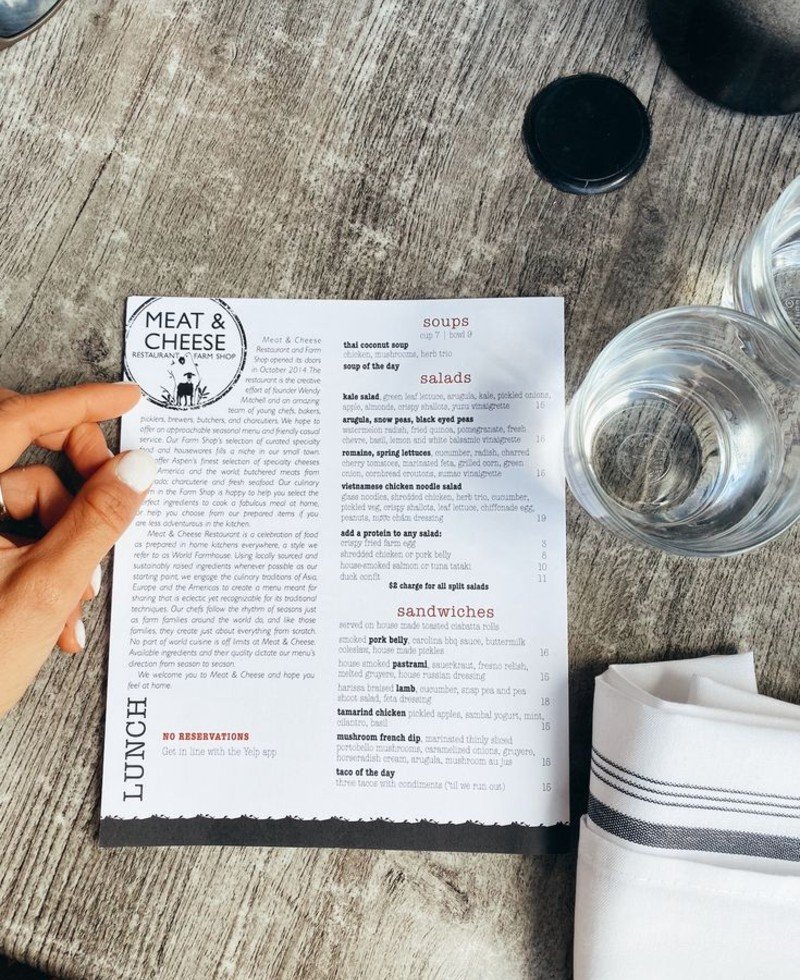 MEAT &
CHEESE
RESTAURANT FARM SHOP
Meat & Cheese
Restaurant and Farm
Shop opened its doors
in October 2014. The
restaurant is the creative
effort of founder Wendy
Mitchell and an amazing
team of young chefs, bakers,
picklers, brewers, butchers, and charcutiers. We hope to
offer an approachable seasonal menu and friendly casual
service. Our Farm Shop's selection of curated specialty
food and housewares fills a niche in our small town.
offer Aspen's finest selection of specialty cheeses
America and the world, butchered meats from
charcuterie and fresh seafood. Our culinary
in the Farm Shop is happy to help you select the
perfect ingredients to cook a fabulous meal at home,
or help you choose from our prepared items if you
are less adventurous in the kitchen.
Meat & Cheese Restaurant is a celebration of food
as prepared in home kitchens everywhere, a style we
refer to as World Farmhouse. Using locally sourced and
sustainably raised ingredients whenever possible as our
starting point, we engage the culinary traditions of Asia,
Europe and the Americas to create a menu meant for
sharing that is eclectic yet recognizable for its traditional
techniques. Our chefs follow the rhythm of seasons just
as farm families around the world do, and like those
families, they create just about everything from scratch.
No part of world cuisine is off limits at Meat & Cheese.
Available ingredients and their quality dictate our menu's
direction from season to season.
We welcome you to Meat & Cheese and hope you
feel at home.
LUNCH
NO RESERVATIONS
Get in line with the Yelp app
soups
cup 7 | bowl 9
thai coconut soup
chicken, mushrooms, herb trio
soup of the day
salads
kale salad, green leaf lettuce, arugula, kale, pickled onions,
apple, almonds, crispy shallots, yuzu vinaigrette 16
arugula, snow peas, black eyed peas
watermelon radish, fried quinoa, pomegranate, fresh
chevre, basil, lemon and white balsamic vinaigrette 16
romaine, spring lettuces, cucumber, radish, charred
cherry tomatoes, marinated feta, grilled corn, green
onion, cornbread croutons, sumac vinaigrette 16
vietnamese chicken noodle salad
glass noodles, shredded chicken, herb trio, cucumber,
pickled veg, crispy shallots, leaf lettuce, chiffonade egg,
peanuts, nước chấm dressing 19
add a protein to any salad:
crispy fried farm egg 3
shredded chicken or pork belly 8
house-smoked salmon or tuna tataki 10
duck confit 11
$2 charge for all split salads
sandwiches
served on house made toasted ciabatta rolls
smoked pork belly, carolina bbq sauce, buttermilk
coleslaw, house made pickles 16
house smoked pastrami, sauerkraut, fresno relish,
melted gruyere, house russian dressing 16
harissa braised lamb, cucumber, snap pea and pea
shoot salad, feta dressing 18
tamarind chicken pickled apples, sambal yogurt, mint,
cilantro, basil 16
mushroom french dip, marinated thinly sliced
portobello mushrooms, caramelized onions, gruyere,
horseradish cream, arugula, mushroom au jus 16
taco of the day
three tacos with condiments ('til we run out) 16